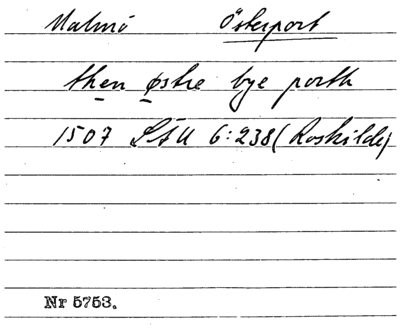 Malmö Österport
then østre bye porth
1507 LÄU 6:238 (Roskilde)
Nr 5753.